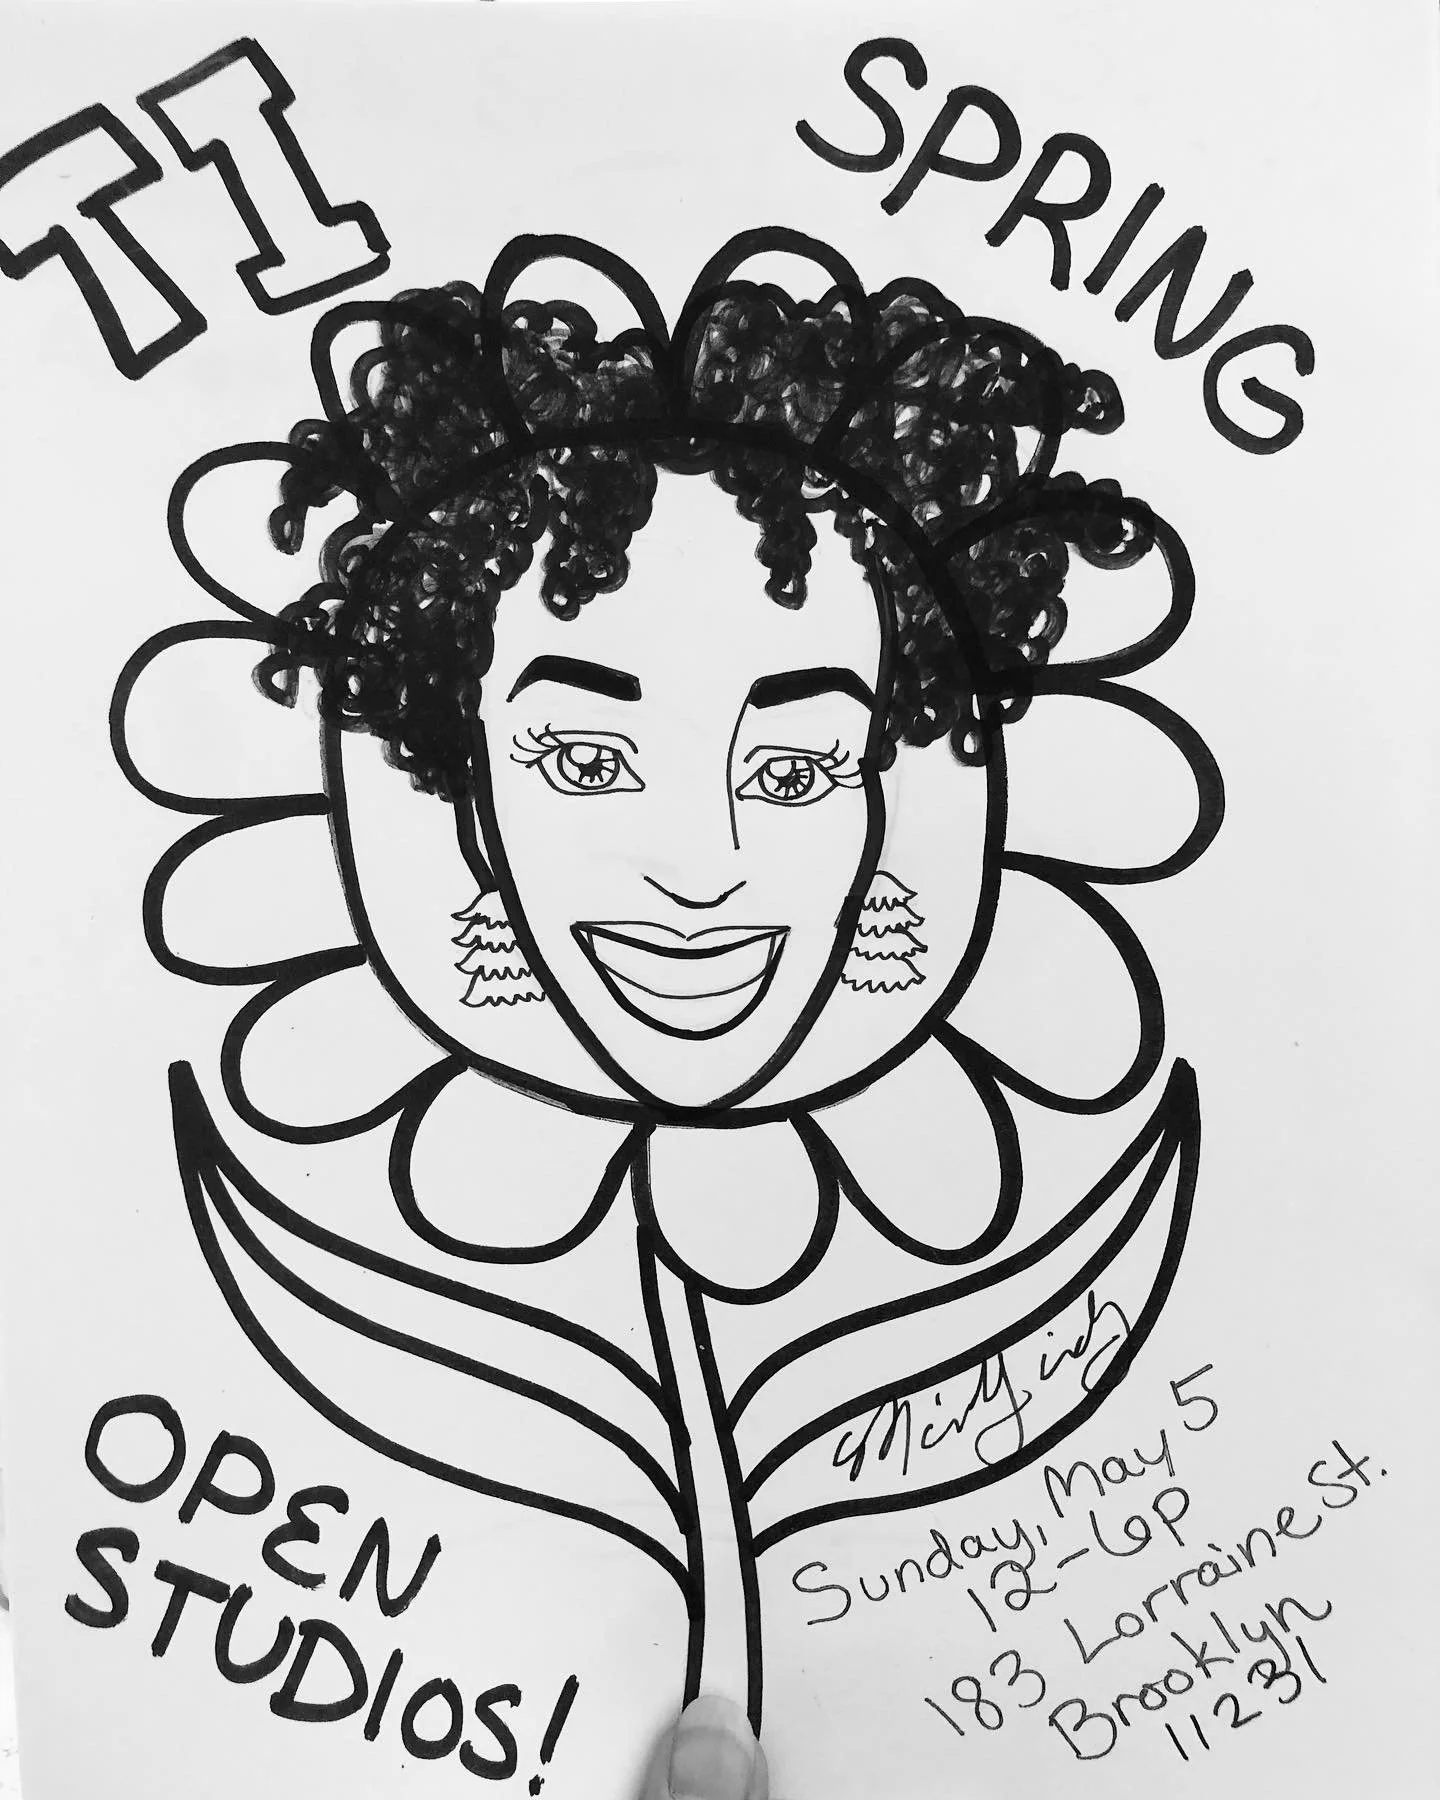 TI
SPRING
OPEN
STUDIOS!
Sunday, May 5
12-6P
183 Lorraine St.
Brooklyn
11231